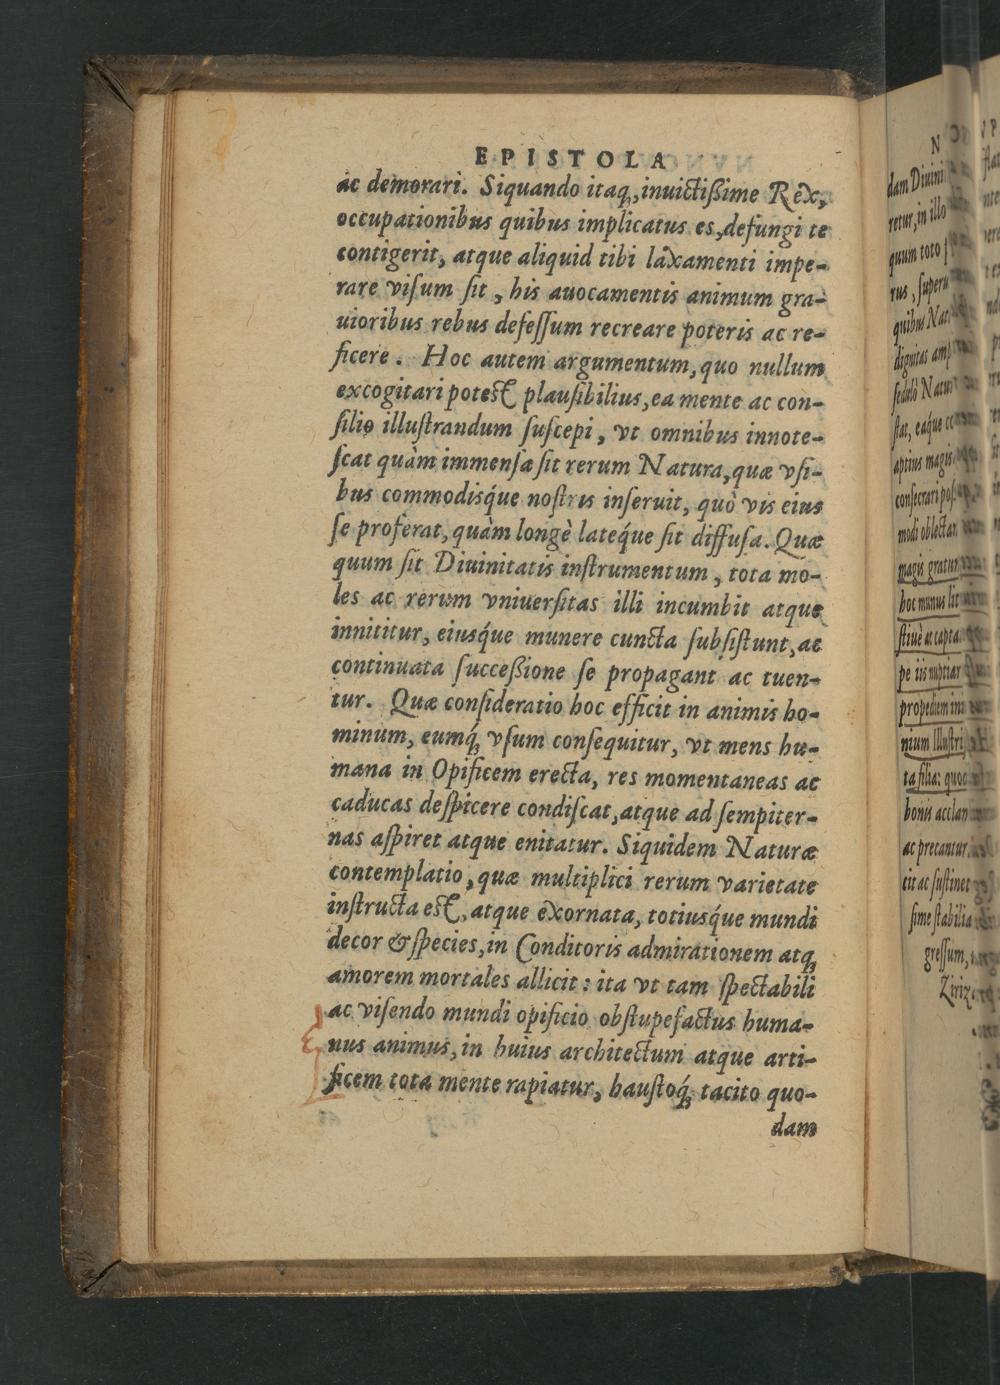 EPISTOLA
ac demorari. Siquando itaq́;, inuictiſsime Rex,
occupationibus quibus implicatus es, defungi te
contigerit, atque aliquid tibi laxamenti impe-
rare viſum ſit, his auocamentis animum gra-
uioribus rebus defeſſum recreare poteris ac re-
ficere. Hoc autem argumentum, quo nullum
excogitari potest plauſibilius, ea mente ac con-
ſilio illuſtrandum ſuſcepi, vt omnibus innote-
ſcat quàm immenſa ſit rerum Natura, quæ vſi-
bus commodisq́ue noſtris inſeruit, quò vis eius
ſe proferat, quàm longè lateq́ue ſit diffuſa. Quæ
quum ſit Diuinitatis inſtrumentum, tota mo-
les ac rerum vniuerſitas illi incumbit atque
innititur, eiusq́ue munere cuncta ſubſiſtunt, ac
continuata ſucceſsione ſe propagant ac tuen-
tur. Quæ conſideratio hoc efficit in animis ho-
minum, eumq́; vſum conſequitur, vt mens hu-
mana in Opificem erecta, res momentaneas ac
caducas deſpicere condiſcat, atque ad ſempiter-
nas aſpiret atque enitatur. Siquidem Naturæ
contemplatio, quæ multiplici rerum varietate
inſtructa est, atque exornata, totiusq́ue mundi
decor & ſpecies, in Conditoris admirationem atq;
amorem mortales allicit: ita vt tam ſpectabili
ac viſendo mundi opificio obſtupefactus huma-
nus animus, in huius architectum atque arti-
ficem tota mente rapiatur, hauſtoq́; tacito quo-
dam
N
dam Diuini
retur, in illo
quum toto
rus, ſuper
quibus Nat
dignitas amp
ſedulò Natur
ſtat, eaq́ue
aptius magis
conſecrari poſ
modi oblectar
magis gratum
hoc munus lit
ſtiuè ac capta
pe iis nuptiar
propediem ini
nium Illuſtri
ta filia: quoc
bonis acclan
ac precantur
cit ac ſuſtinet
ſime ſtabilia
greſſum,
Ziriz